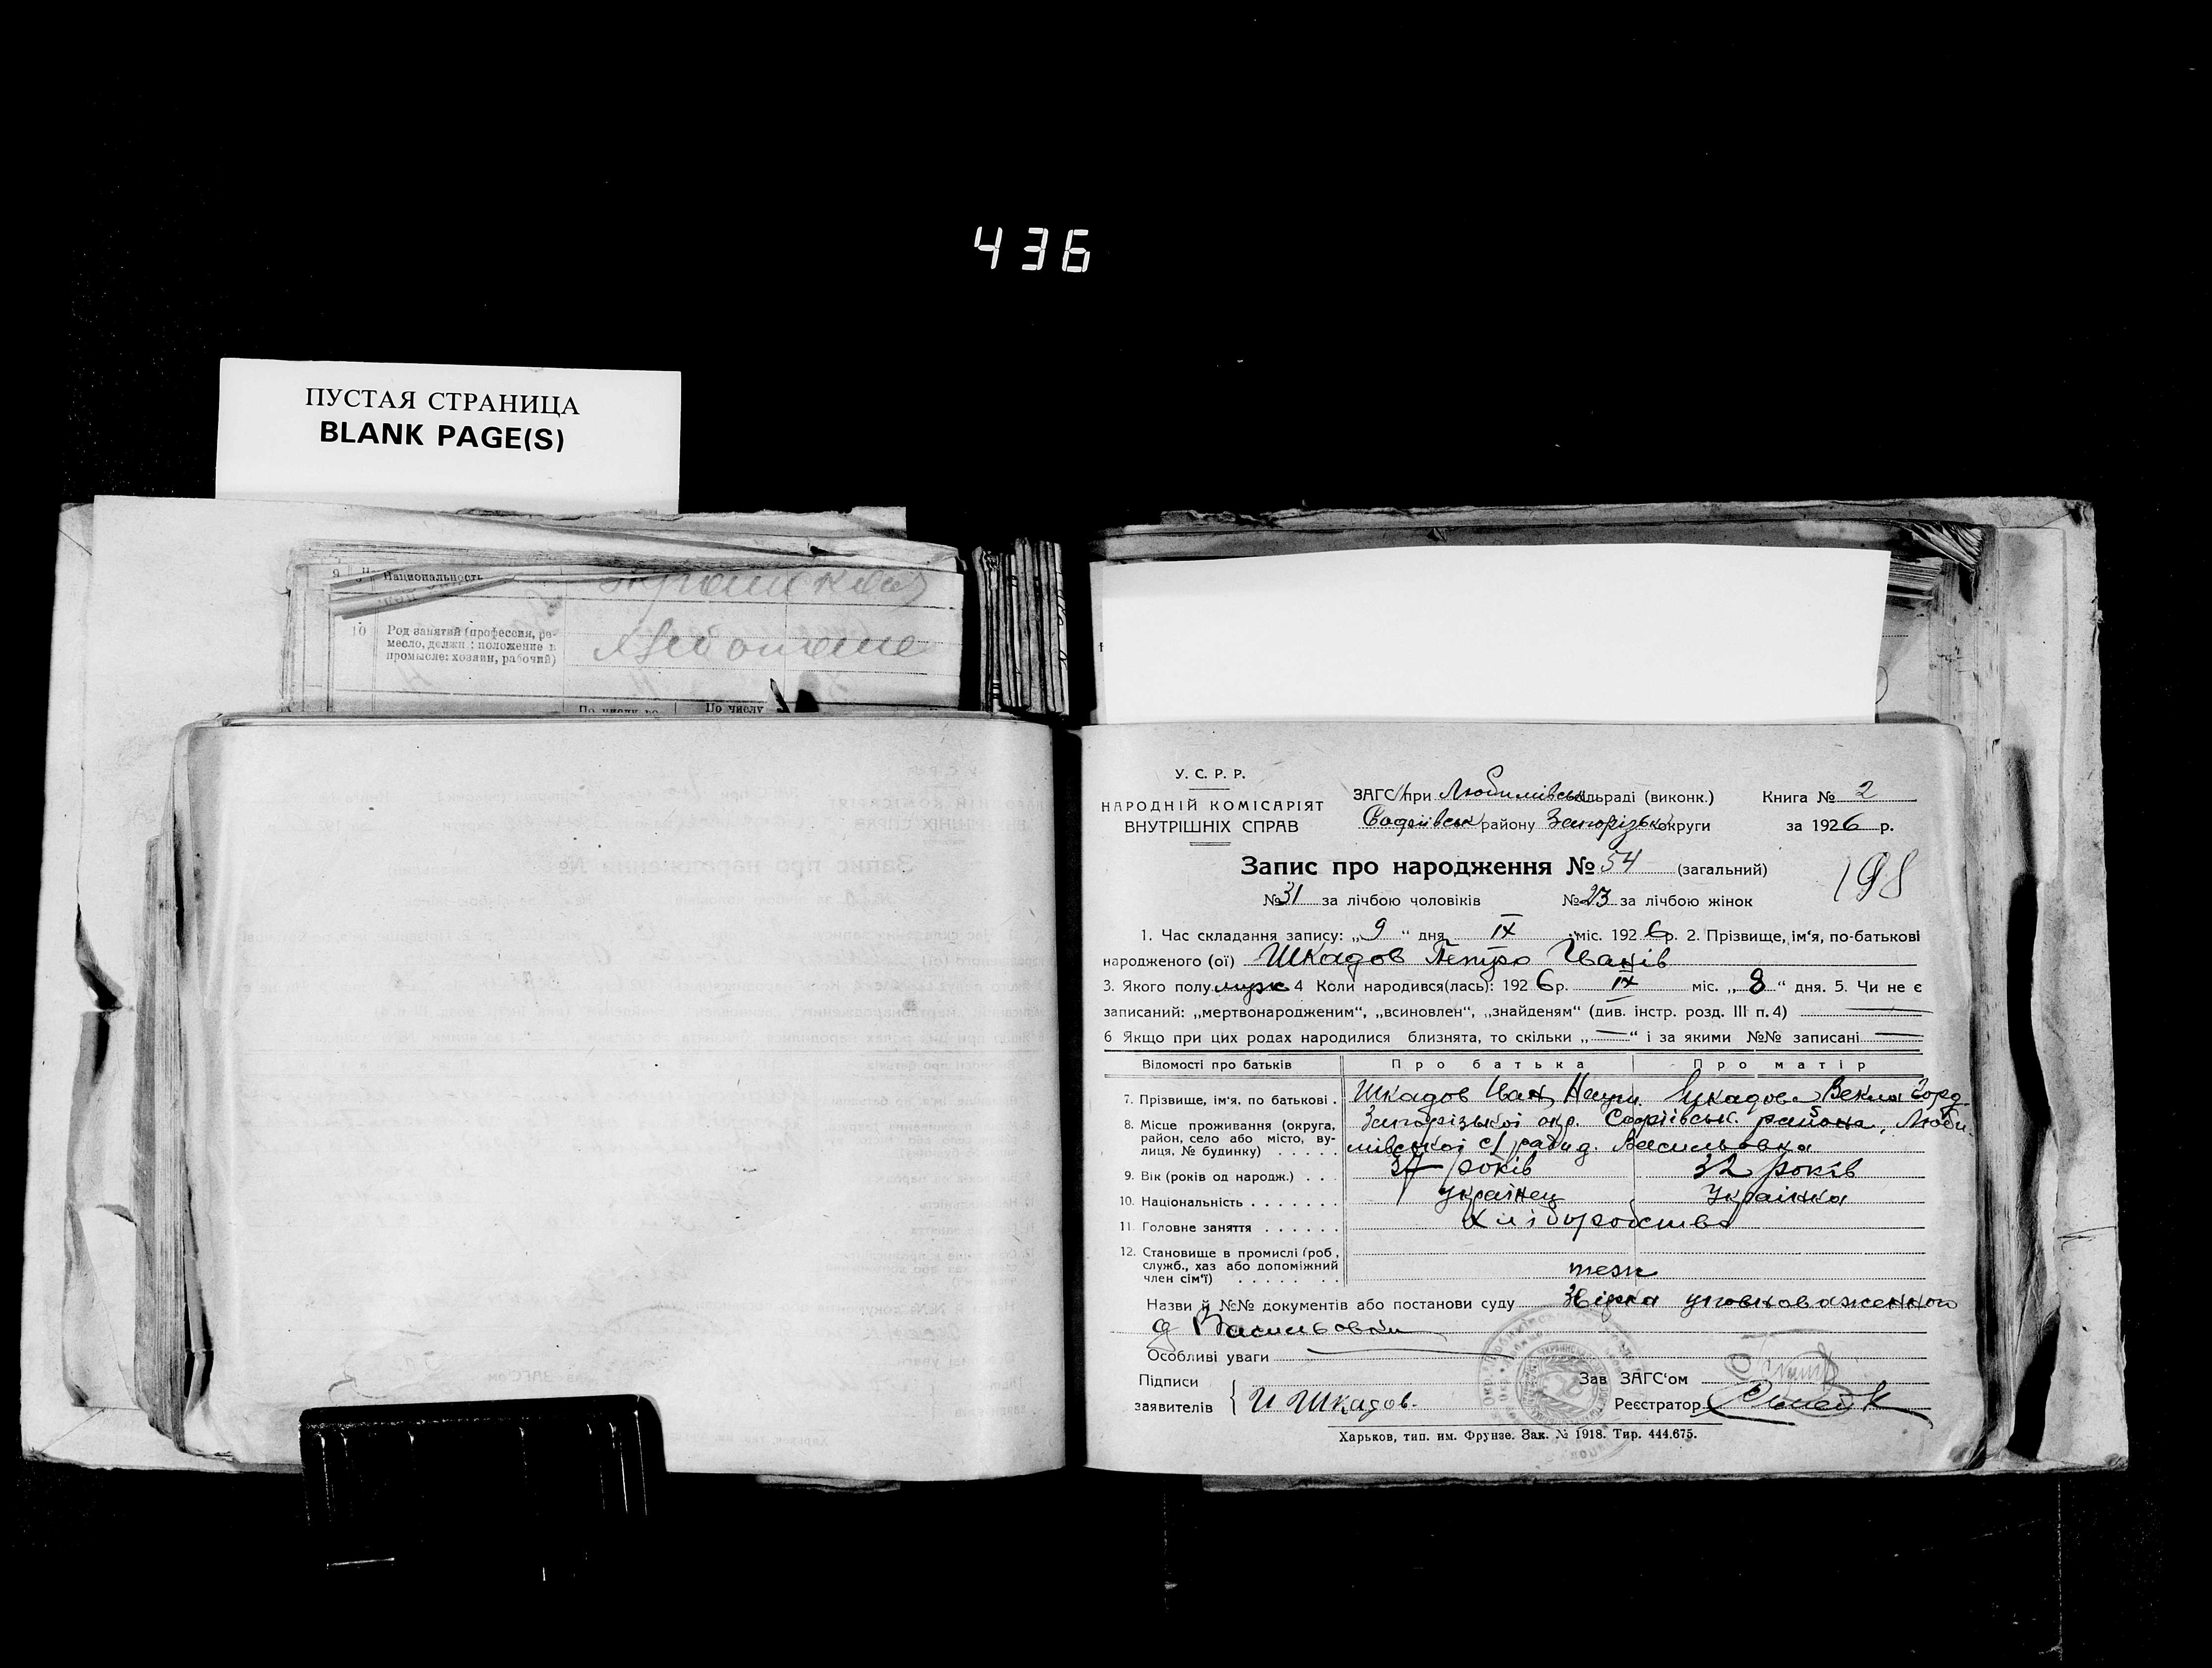 436
ПУСТАЯ СТРАНИЦА
BLANK PAGE(S)
9 Национальность
10 Род занятий (профессия, ре-
месло, должн.: положение в
промысле: хозяин, рабочий)
По числу По числу
У. С. Р. Р.
НАРОДНІЙ КОМІСАРІЯТ
ВНУТРІШНІХ СПРАВ
ЗАГС при Любимівськ раді (виконк.) Книга № 2
Софіївськ району Запорізьк округи за 1926 р.
Запис про народження № 54 (загальний)
198
№ 31 за лічбою чоловіків № 23 за лічбою жінок
1. Час складання запису: „9“ дня IX міс. 1926 р. 2. Прізвище, ім'я, по-батькові
народженого (ої) Шкадов Петро Іванів
3. Якого полу муж 4 Коли народився(лась): 1926 р. IX міс. „8“ дня. 5. Чи не є
записаний: „мертвонародженим“, „всиновлен“, „знайденям“ (див. інстр. розд. III п. 4)
6 Якщо при цих родах народилися близнята, то скільки „—“ і за якими №№ записані
Відомості про батьків Про батька Про матір
7. Прізвище, ім'я, по батькові . Шкадов Іван Наум. Шкадова Векла Горд.
8. Місце проживання (округа, район, село або місто, ву-
лиця, № будинку) . . . . . Запорізької окр. Софіївськ. района, Люби-
мівської с/ради д. Васильовка
9. Вік (років од народж.) . . . 37 років 32 років
10. Національність . . . . . . . українец Українка
11. Головне заняття . . . . . . хліборобство
12. Становище в промислі (роб.,
служб., хаз або допоміжний
член сім'ї) . . . . . . . теж
Назви й №№ документів або постанови суду уповноваженного
д Васильовки
Особливі уваги
Підписи
заявителів { И Шкадов.
Зав ЗАГС'ом
Реєстратор
Харьков, тип. им. Фрунзе. Зак. № 1918. Тир. 444.675.